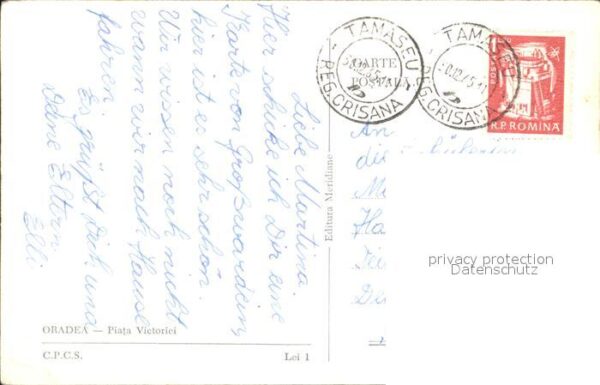 Liebe Martina.
Hier schicke ich Dir eine
Karte von Großwardein,
hier ist es sehr schön.
Wir wissen noch nicht
wann wir nach Hause
fahren.
Es grüßt Dich und
Deine Eltern
Elli
ORADEA — Piața Victoriei
C.P.C.S.
Lei 1
Editura Meridiane
CARTE
POȘTALĂ
TAMASEU
REG. CRISANA
TAMASEU
REG. CRISANA
1 LEU
POSTA
R.P. ROMINA
An
die
privacy protection
Datenschutz